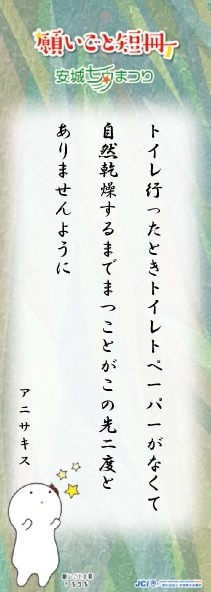 願いごと短冊
安城七夕まつり
トイレ行ったときトイレトペーパーがなくて
自然乾燥するまでまつことがこの先二度と
ありませんように
アニサキス
JCI